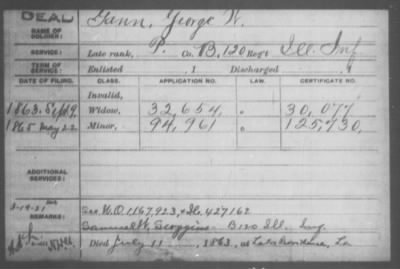 DEAD
NAME OF SOLDIER: Gann, George W.
SERVICE: Late rank, P. Co. B, 120 Reg't Ill. Inf
TERM OF SERVICE: Enlisted , 1 Discharged , 1
DATE OF FILING. CLASS. APPLICATION NO. LAW. CERTIFICATE NO.
Invalid,
1863. Sept 9. Widow, 32,654, " 30,077
1865 May 22 Minor, 94,961 " 125,730,
ADDITIONAL SERVICES:
REMARKS: W.O. 1167,923, & 427162
Samuel W. Scoggins B 120 Ill. Inf.
Died July 11, 1863, at Lake Providence, La